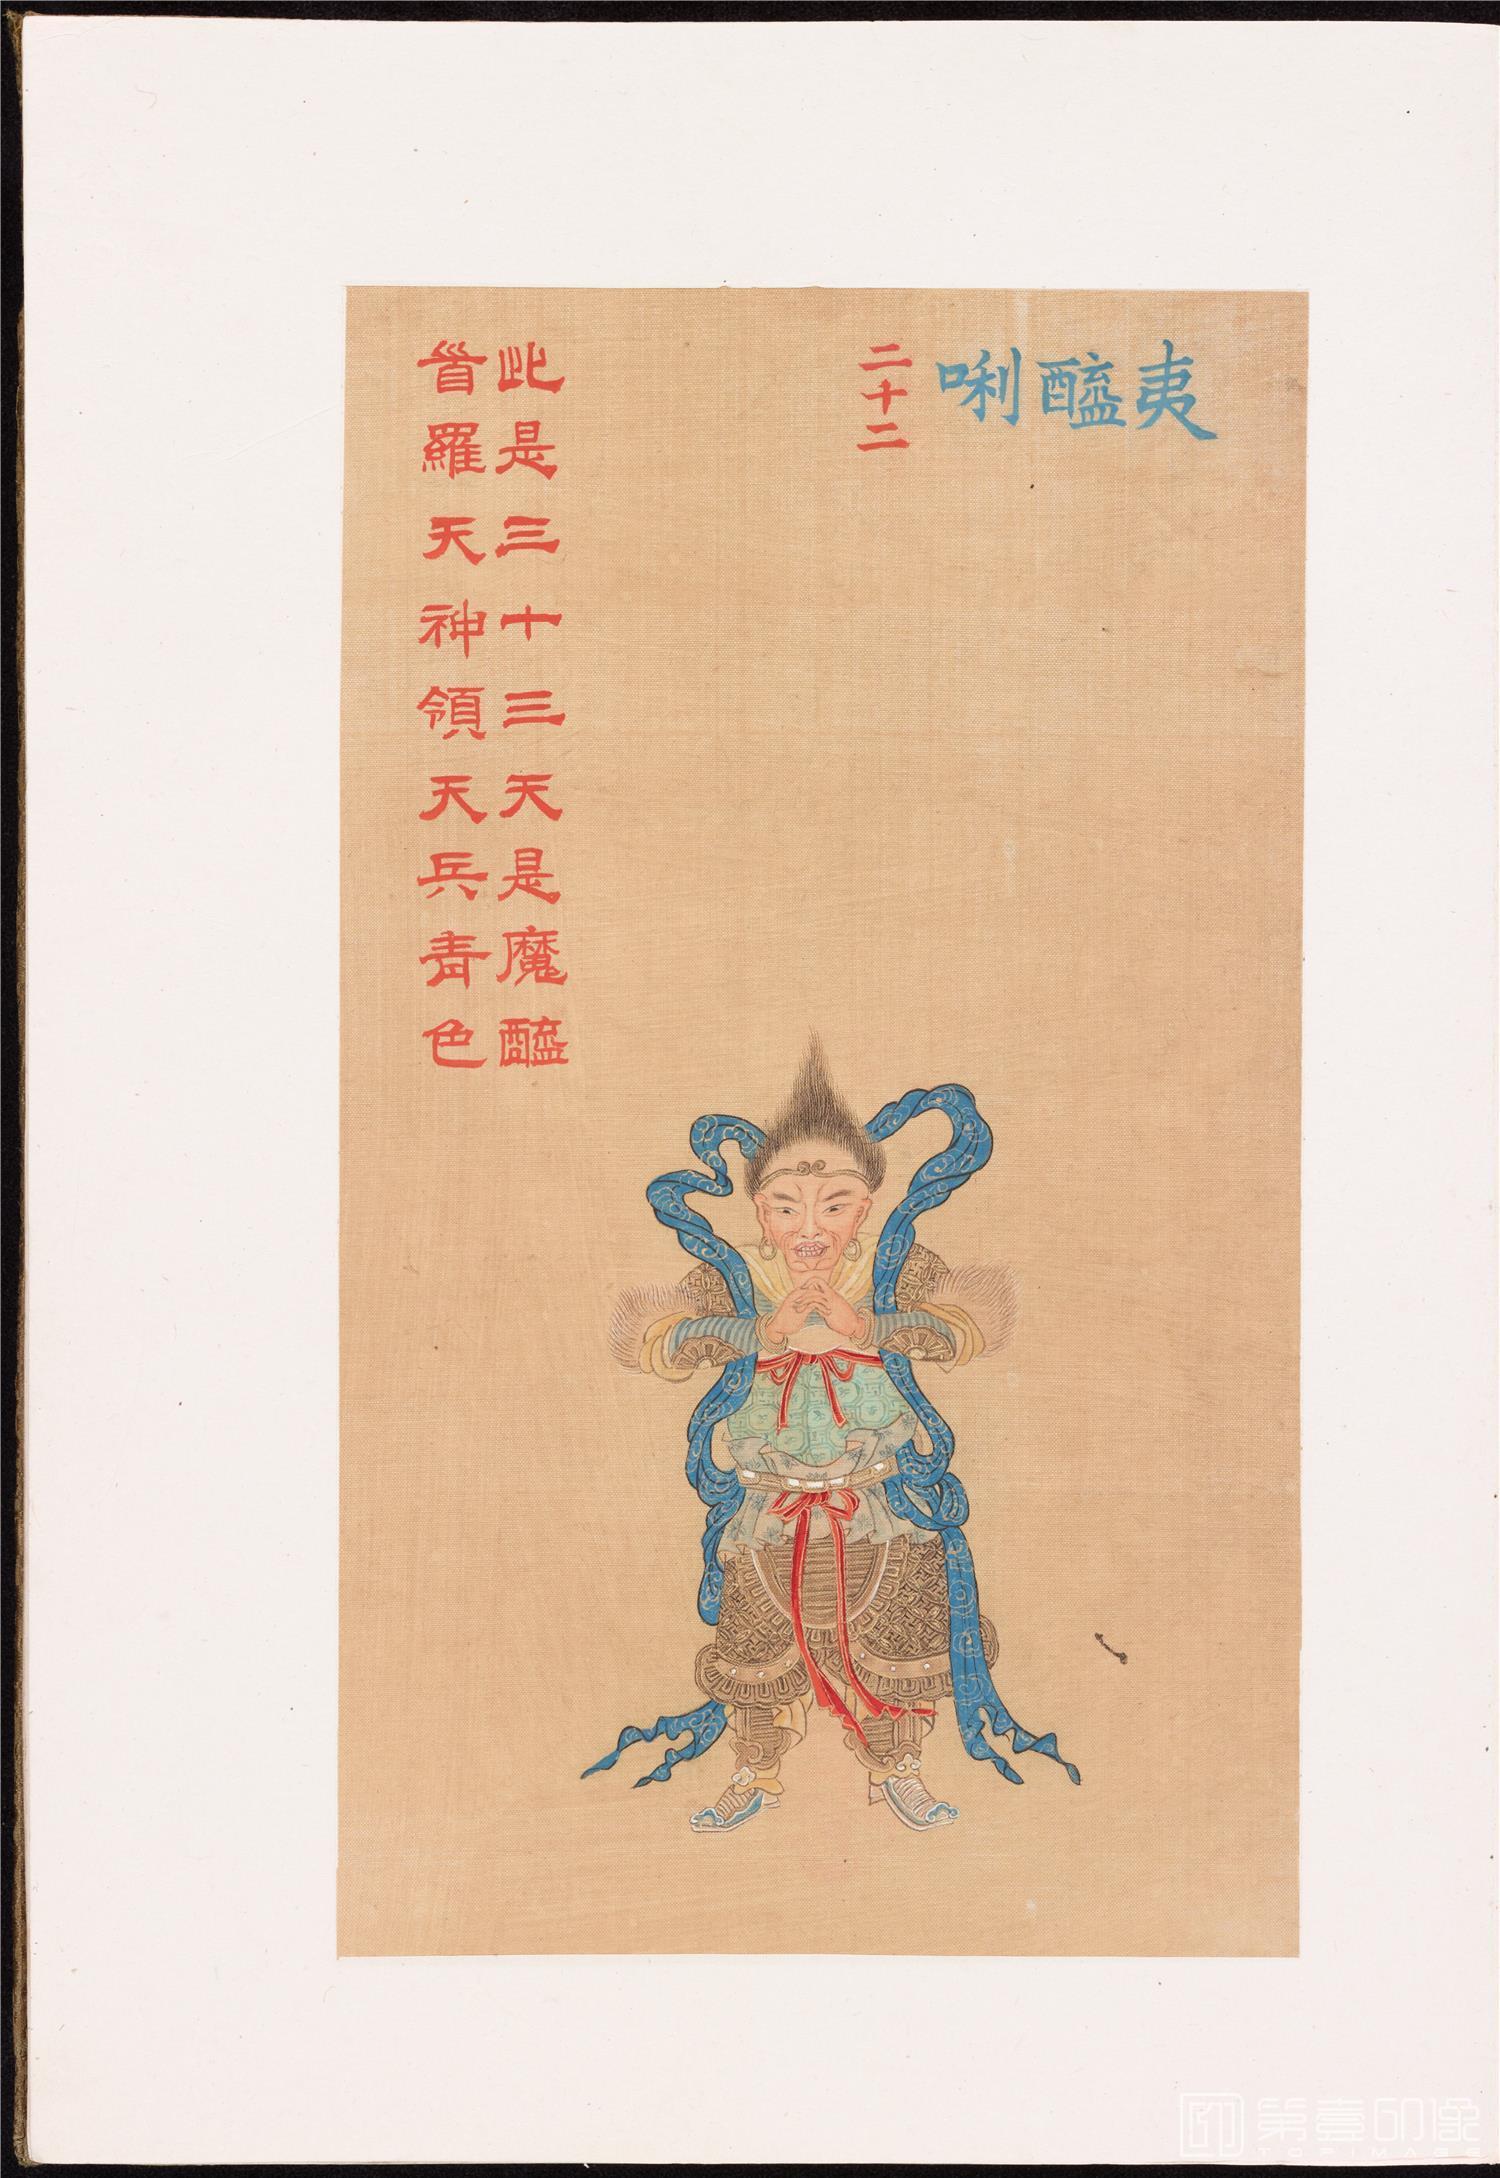 夷醯唎
二十二
此是三十三天是魔醯
首羅天神領天兵青色
第壹印像
TOPIMAGE